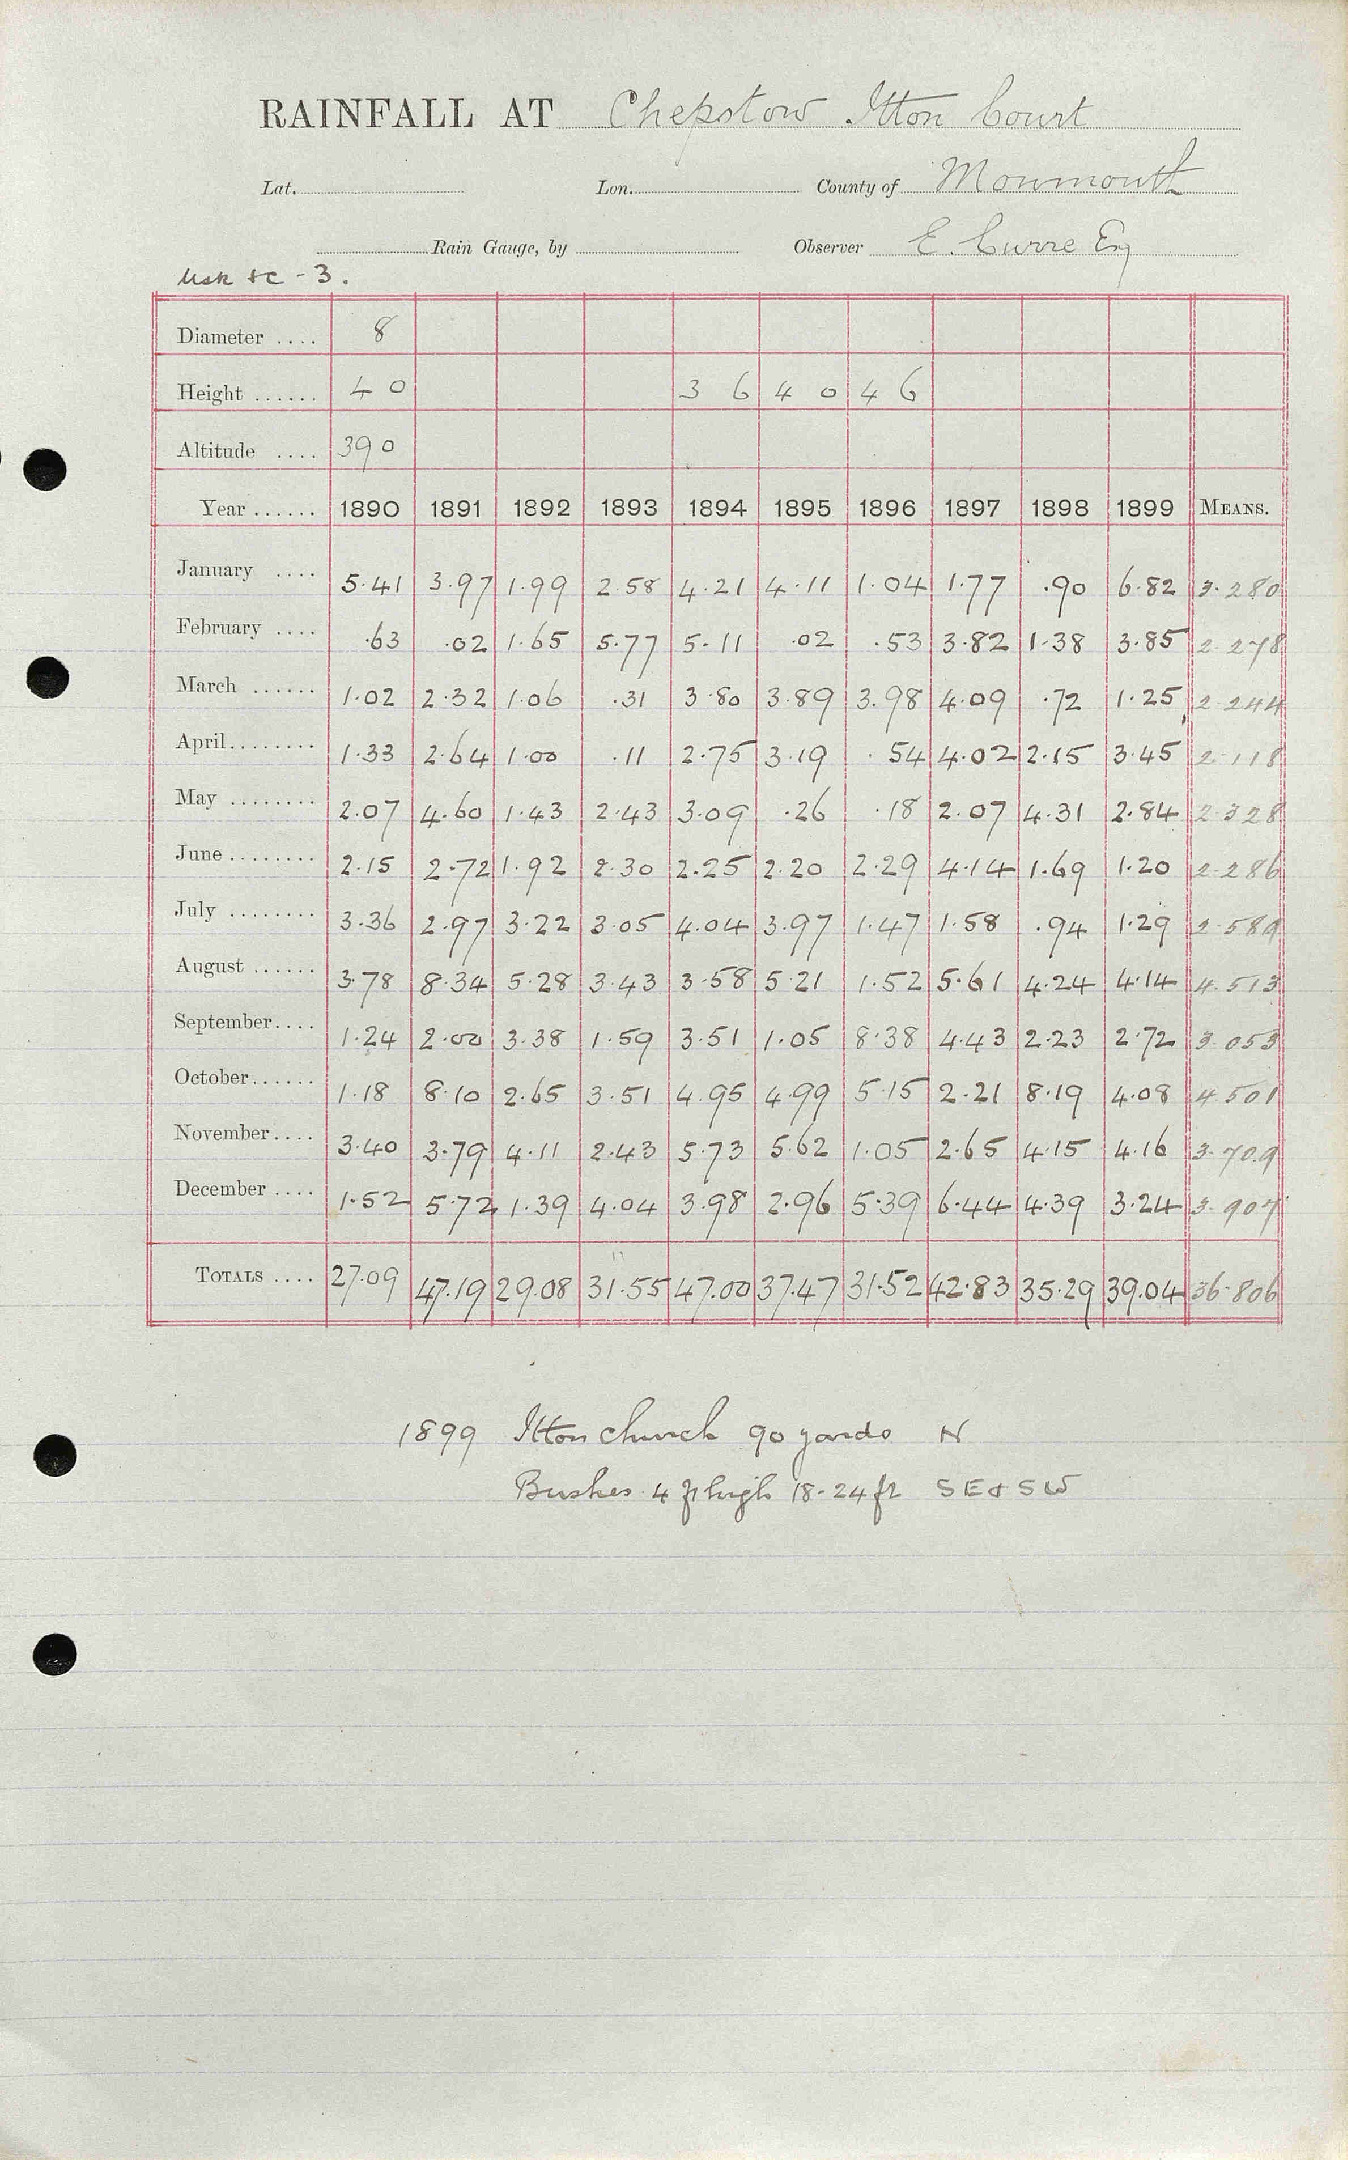 RAINFALL AT Chepstow Itton Court
Lat. Lon. County of Monmouth
Rain Gauge, by Observer E. Curre Esq
Usk &c - 3.
Diameter .... 8
Height ...... 4 0 3 6 4 0 4 6
Altitude .... 390
Year ...... 1890 1891 1892 1893 1894 1895 1896 1897 1898 1899 MEANS.
January .... 5.41 3.97 1.99 2.58 4.21 4.11 1.04 1.77 .90 6.82 3.280
February .... .63 .02 1.65 5.77 5.11 .02 .53 3.82 1.38 3.85 2.278
March ...... 1.02 2.32 1.06 .31 3.80 3.89 3.98 4.09 .72 1.25 2.244
April........ 1.33 2.64 1.00 .11 2.75 3.19 .54 4.02 2.15 3.45 2.118
May ........ 2.07 4.60 1.43 2.43 3.09 .26 .18 2.07 4.31 2.84 2.328
June........ 2.15 2.72 1.92 2.30 2.25 2.20 2.29 4.14 1.69 1.20 2.286
July ........ 3.36 2.97 3.22 3.05 4.04 3.97 1.47 1.58 .94 1.29 2.589
August ...... 3.78 8.34 5.28 3.43 3.58 5.21 1.52 5.61 4.24 4.14 4.513
September.... 1.24 2.00 3.38 1.59 3.51 1.05 8.38 4.43 2.23 2.72 3.053
October...... 1.18 8.10 2.65 3.51 4.95 4.99 5.15 2.21 8.19 4.08 4.501
November.... 3.40 3.79 4.11 2.43 5.73 5.62 1.05 2.65 4.15 4.16 3.709
December .... 1.52 5.72 1.39 4.04 3.98 2.96 5.39 6.44 4.39 3.24 3.907
TOTALS .... 27.09 47.19 29.08 31.55 47.00 37.47 31.52 42.83 35.29 39.04 36.806
1899 Itton church 90 yards N
Bushes 4 ft high 18-24 ft SE & SW